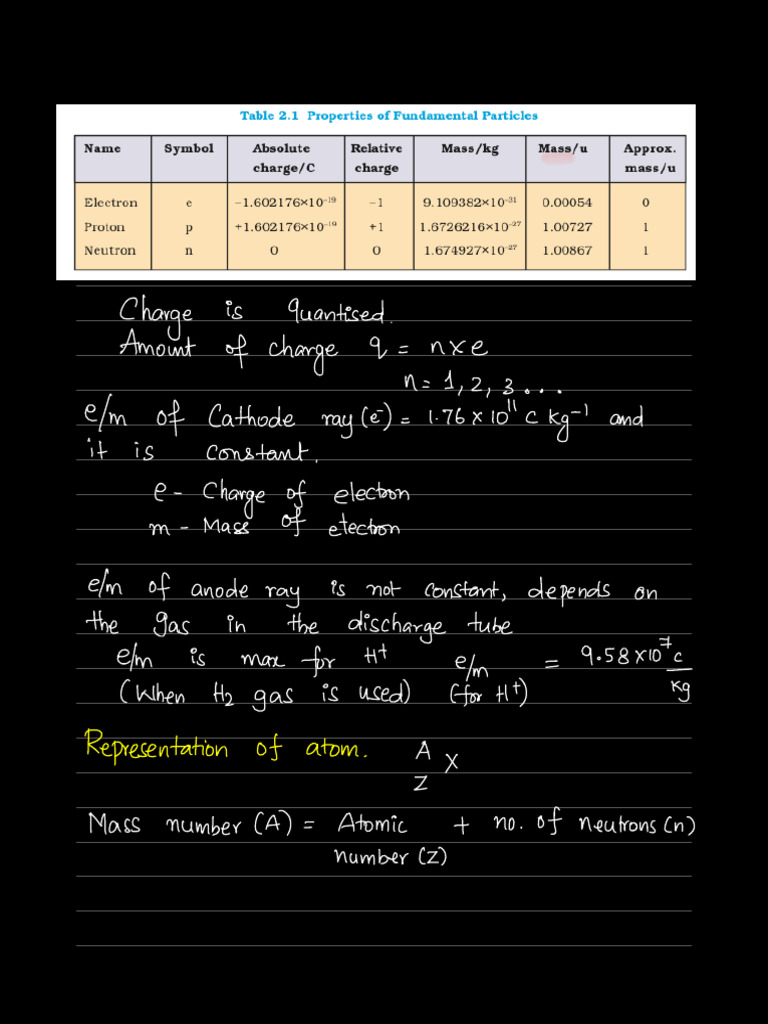 Table 2.1 Properties of Fundamental Particles
Name Symbol Absolute charge/C Relative charge Mass/kg Mass/u Approx. mass/u
Electron e –1.602176×10⁻¹⁹ –1 9.109382×10⁻³¹ 0.00054 0
Proton p +1.602176×10⁻¹⁹ +1 1.6726216×10⁻²⁷ 1.00727 1
Neutron n 0 0 1.674927×10⁻²⁷ 1.00867 1
Charge is quantised.
Amount of charge q = n×e
n = 1, 2, 3 ...
e/m of Cathode ray (e⁻) = 1.76 × 10¹¹ C kg⁻¹ and
it is constant.
e - Charge of electron
m - Mass of electron
e/m of anode ray is not constant, depends on
the gas in the discharge tube
e/m is max for H⁺ e/m = 9.58×10⁷ C/kg
(When H₂ gas is used) (for H⁺)
Representation of atom. A
Z X
Mass number (A) = Atomic + no. of neutrons (n)
number (Z)